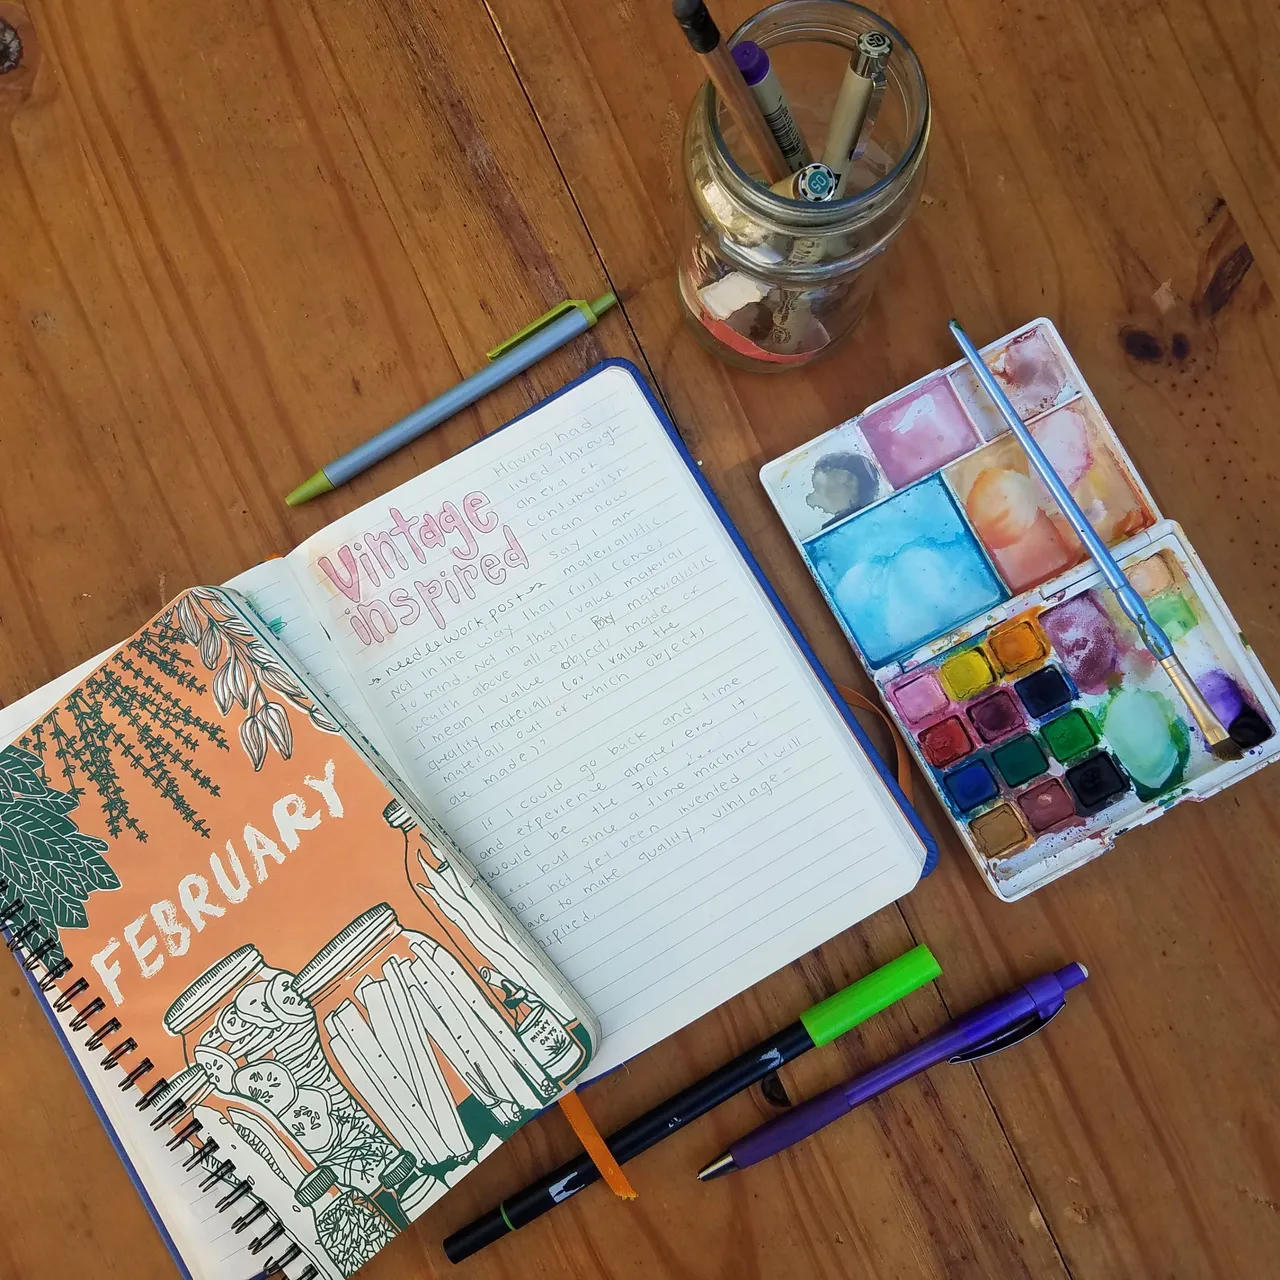 Vintage
inspired
needlework post
Having had
lived through
an era of
consumerism
i can now
say I am
materialistic.
Not in the way that first comes
to mind. Not in that I value material
wealth above all else. materialistic
I mean I value objects made of
quality materials (or I value the
materials out of which objects
are made))
If I could go back and time
and experience another era it
would be the 70's ...!
.... but since a time machine
has not yet been invented I will
have to make quality, vintage-
inspired.
FEBRUARY
MILKY
OATS
05
05